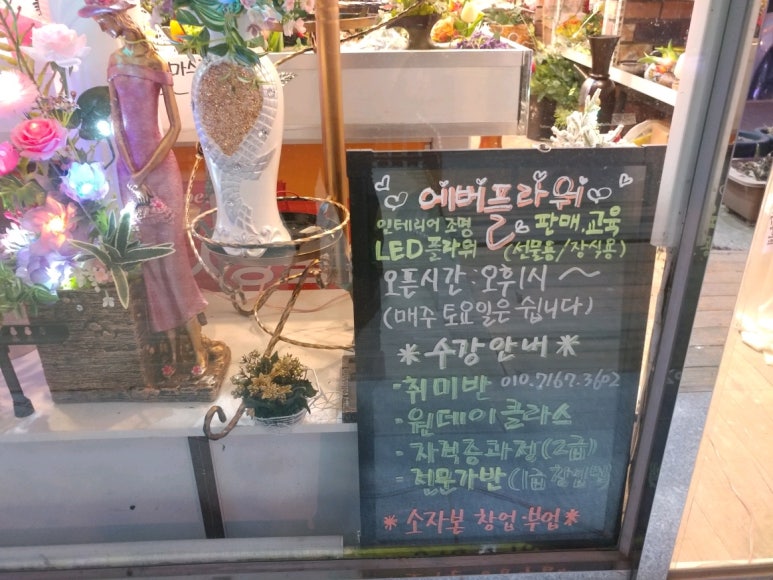 에버플라워
인테리어 조명
LED 플라워
판매.교육
(선물용/장식용)
오픈시간 : 오후1시 ~
(매주 토요일은 쉽니다)
* 수강안내 *
- 취미반 010.7167.3602
- 원데이 클라스
- 자격증과정(2급)
- 전문가반(1급
* 소자본 창업·부업 *